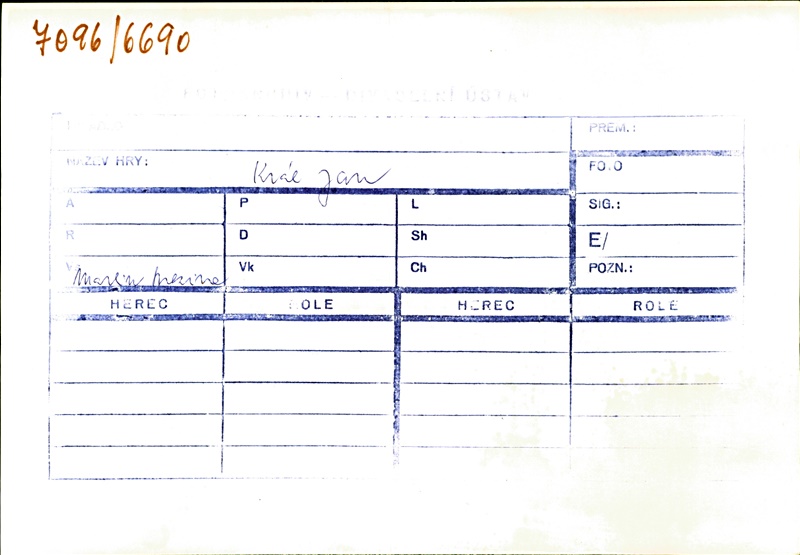 7096/6690
PREM.:
NÁZEV HRY: Král Jan
FOTO
A P L SIG.:
R D Sh E/
V Martin Vk Ch POZN.:
HEREC ROLE HEREC ROLE